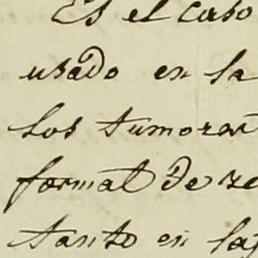 Es el caso
usado en la
los tumores
formal de re
tanto en las